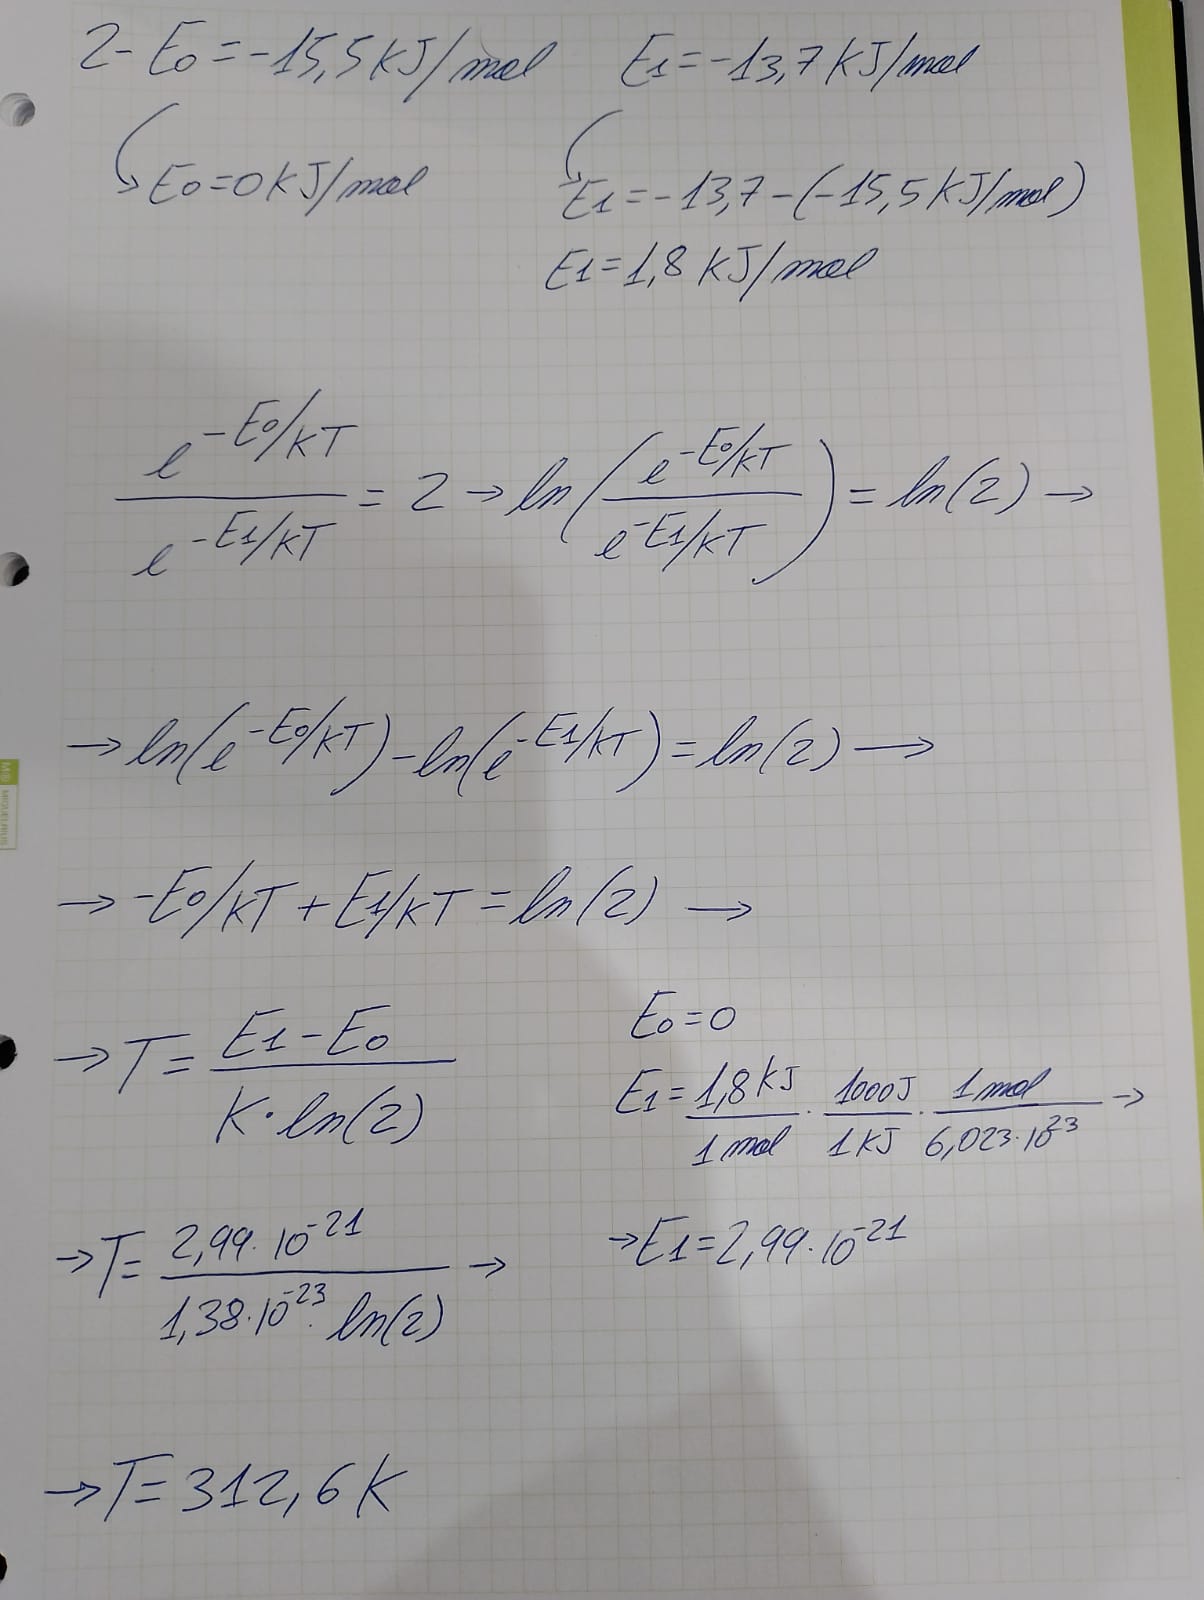 2- E0 = -15,5 KJ/mol E1 = -13,7 KJ/mol
E0 = 0 KJ/mol E1 = -13,7 - (-15,5 KJ/mol)
E1 = 1,8 KJ/mol
e^(-E0/KT) / e^(-E1/KT) = 2 → ln(e^(-E0/KT) / e^(-E1/KT)) = ln(2) →
→ ln(e^(-E0/KT)) - ln(e^(-E1/KT)) = ln(2) →
→ -E0/KT + E1/KT = ln(2) →
→ T = (E1 - E0) / (K · ln(2)) E0 = 0
E1 = 1,8 KJ / 1 mol · 1000J / 1 KJ · 1 mol / 6,023·10^23 →
→ T = 2,99·10^-21 / (1,38·10^-23 · ln(2)) → → E1 = 2,99·10^-21
→ T = 312,6 K
MIQUELRIUS